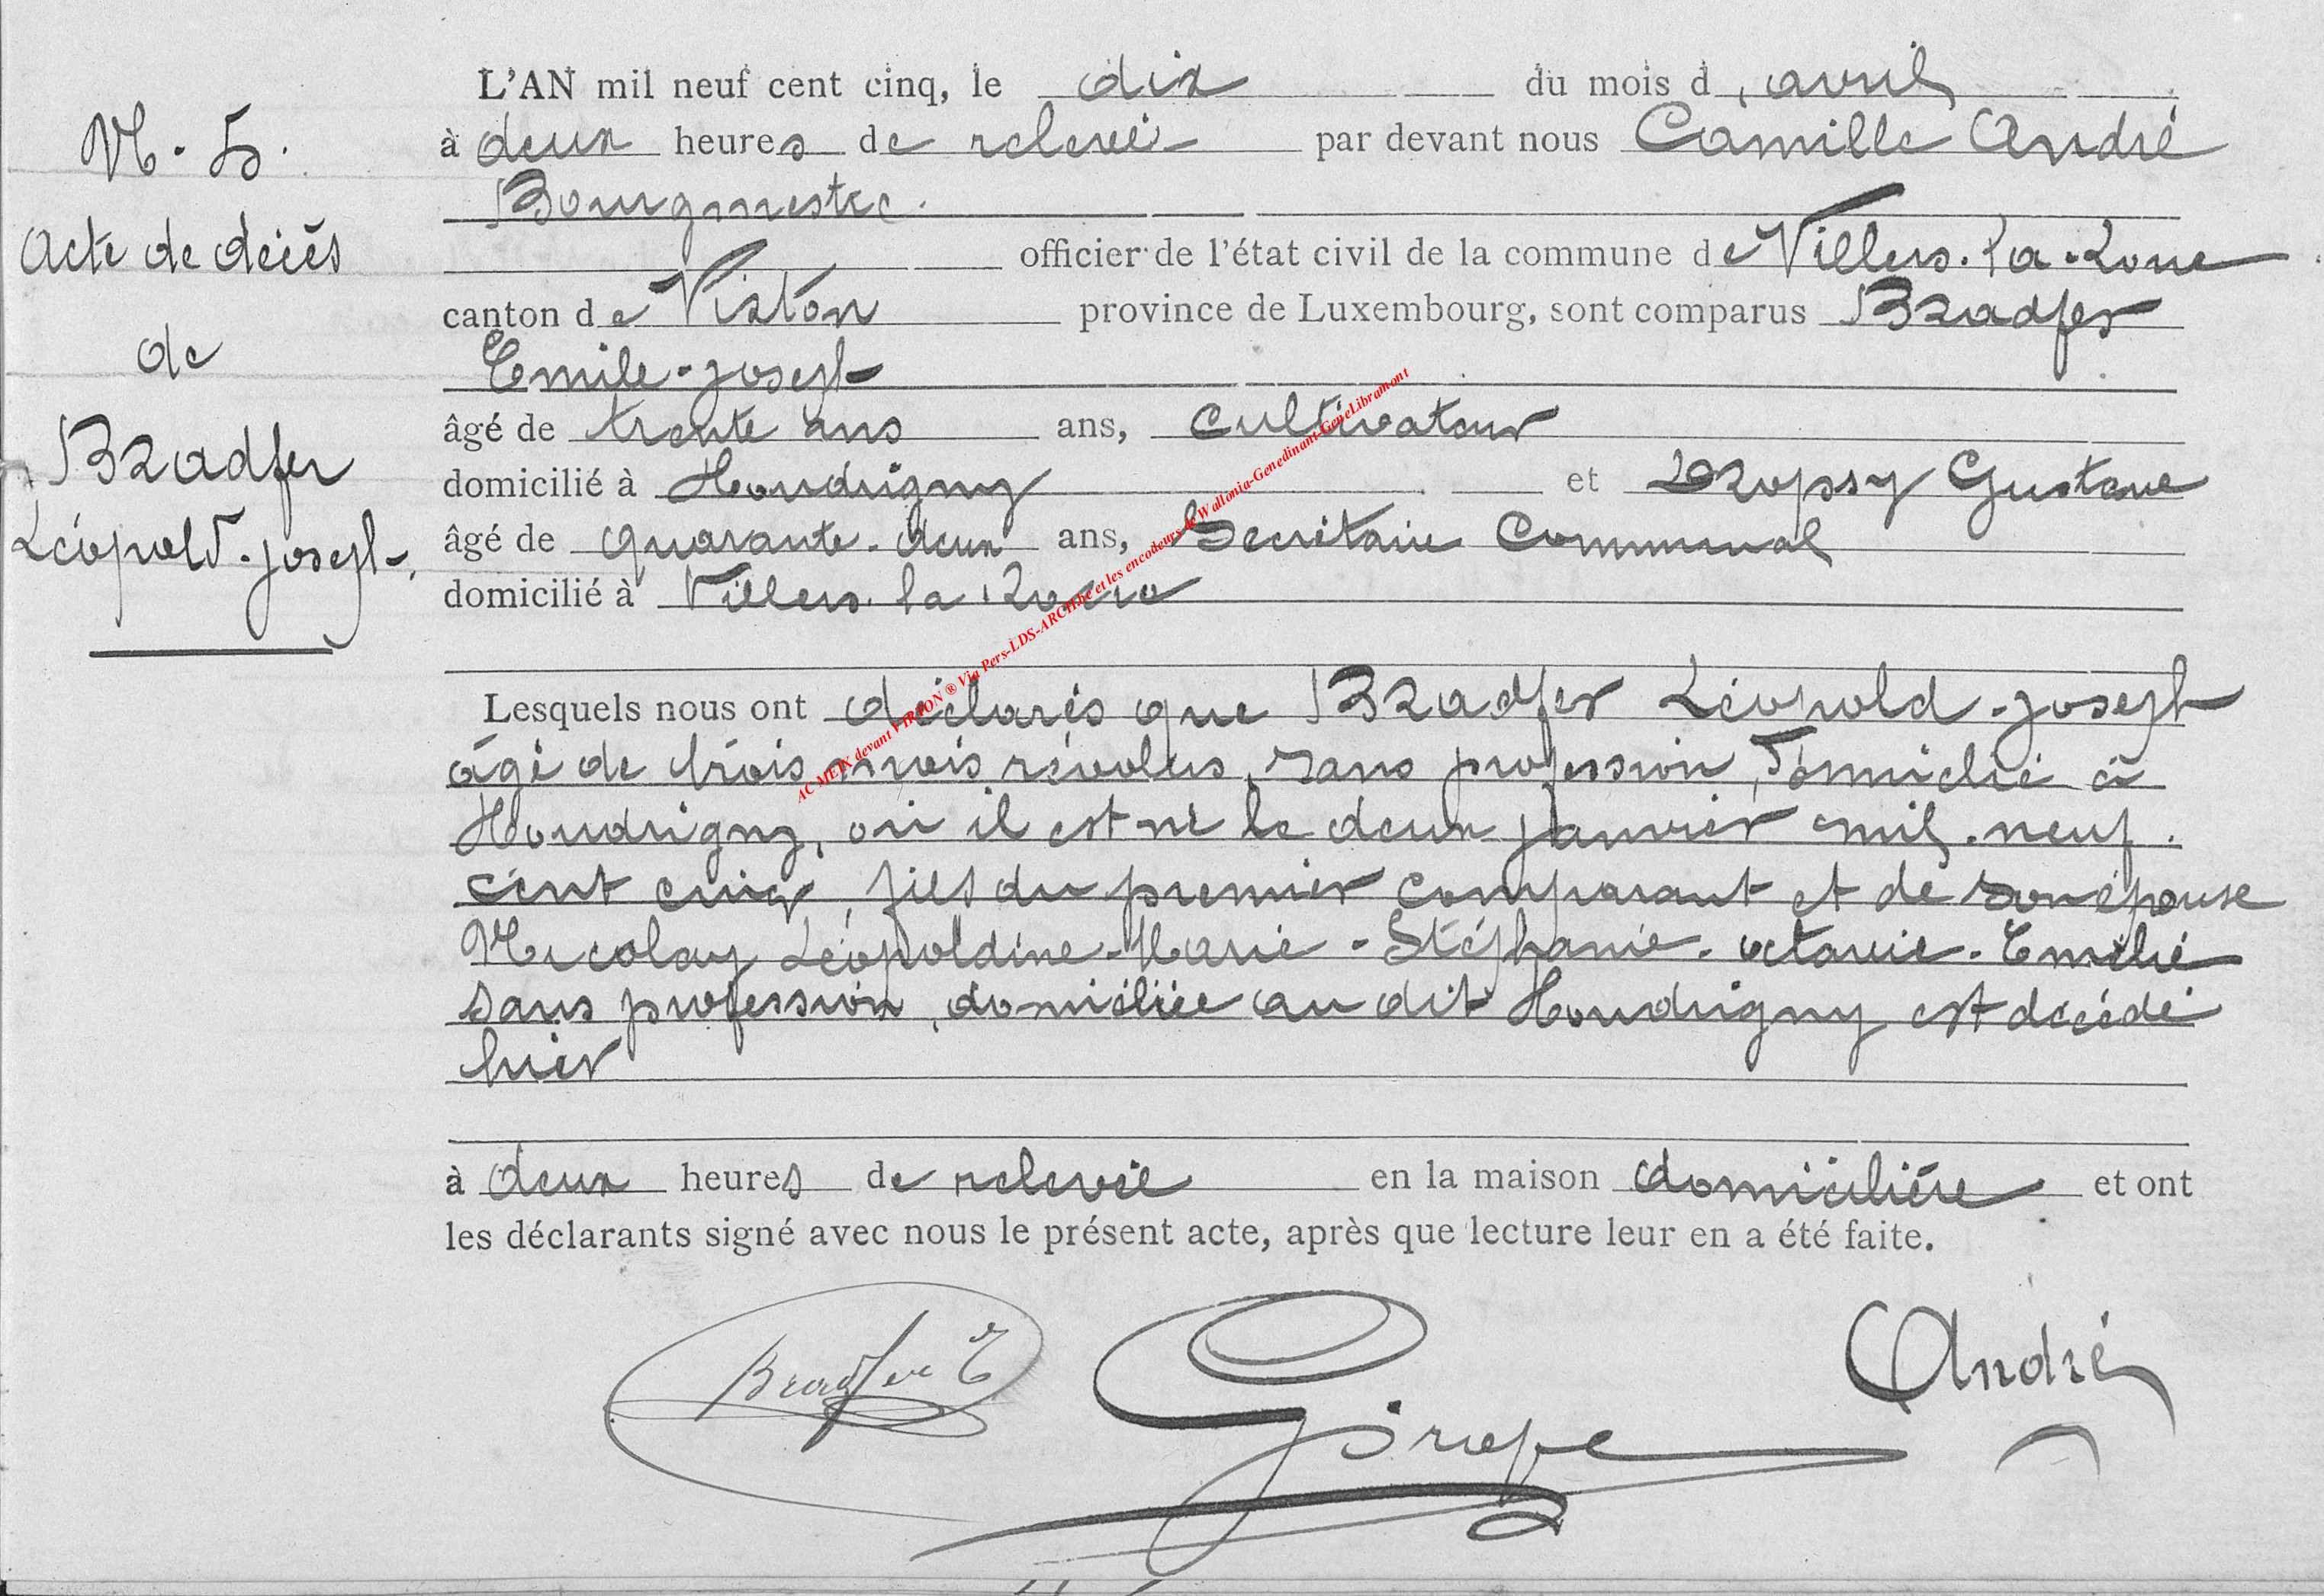 L'AN mil neuf cent cinq, le dix du mois d'avril
à deux heures de relevée par devant nous Camille André
Bourgmestre.
officier de l'état civil de la commune de Villers-la-Loue
canton de Virton province de Luxembourg, sont comparus Bradfer
Emile-joseph
âgé de trente ans ans, cultivateur
domicilié à Houdrigny et Dropsy Gustave
âgé de quarante-deux ans, Secrétaire Communal
domicilié à Villers la Loue
N. 5.
Acte de décès
de
Bradfer
Léopold-joseph.
Lesquels nous ont déclarés que Bradfer Léopold-joseph
âgé de trois mois révolus, sans profession, domicilié à
Houdrigny, où il est né le deux janvier mil-neuf-
cent cinq, fils du premier comparant et de son épouse
Nicolay Léopoldine-Marie-Stéphanie-octavie-Emélie
sans profession, domiciliée au dit Houdrigny est décédé
hier
à deux heures de relevée en la maison domicilière et ont
les déclarants signé avec nous le présent acte, après que lecture leur en a été faite.
Bradfer E
André
AC MEIX devant VIRTON ® Via Pers-LDS-ARCH.be et les encodeurs de Wallonia-Genedinant-GeneLibramont